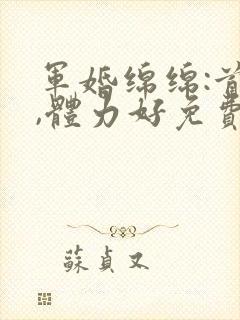 軍婚綿綿:首
,體力好免費
蘇貞又